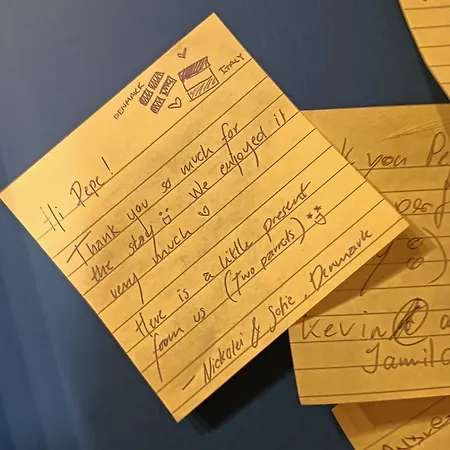 DENMARK
ITALY
Hi Pepe!
Thank you so much for
the stay We enjoyed it
very much ♡
Here is a little present
from us (two parrots)
- Nickolei & Sofie, Denmark
you Pe
Kevin
Jamil